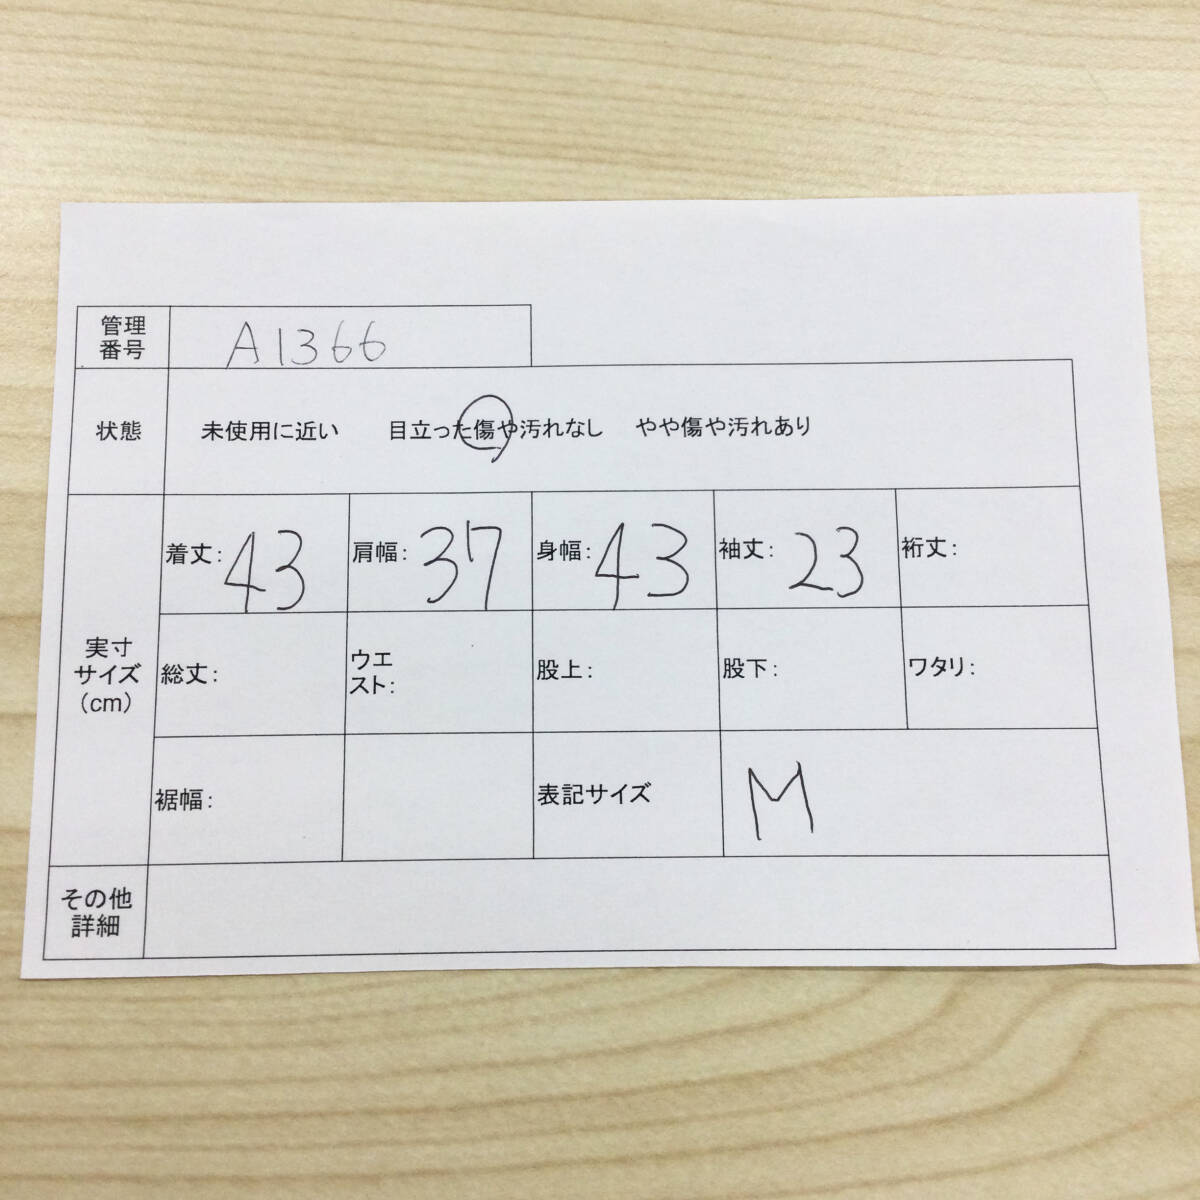 管理
番号
A1366
状態 未使用に近い 目立った傷や汚れなし やや傷や汚れあり
実寸
サイズ
(cm)
着丈: 43 肩幅: 37 身幅: 43 袖丈: 23 裄丈:
総丈: ウエ
スト: 股上: 股下: ワタリ:
裾幅: 表記サイズ M
その他
詳細